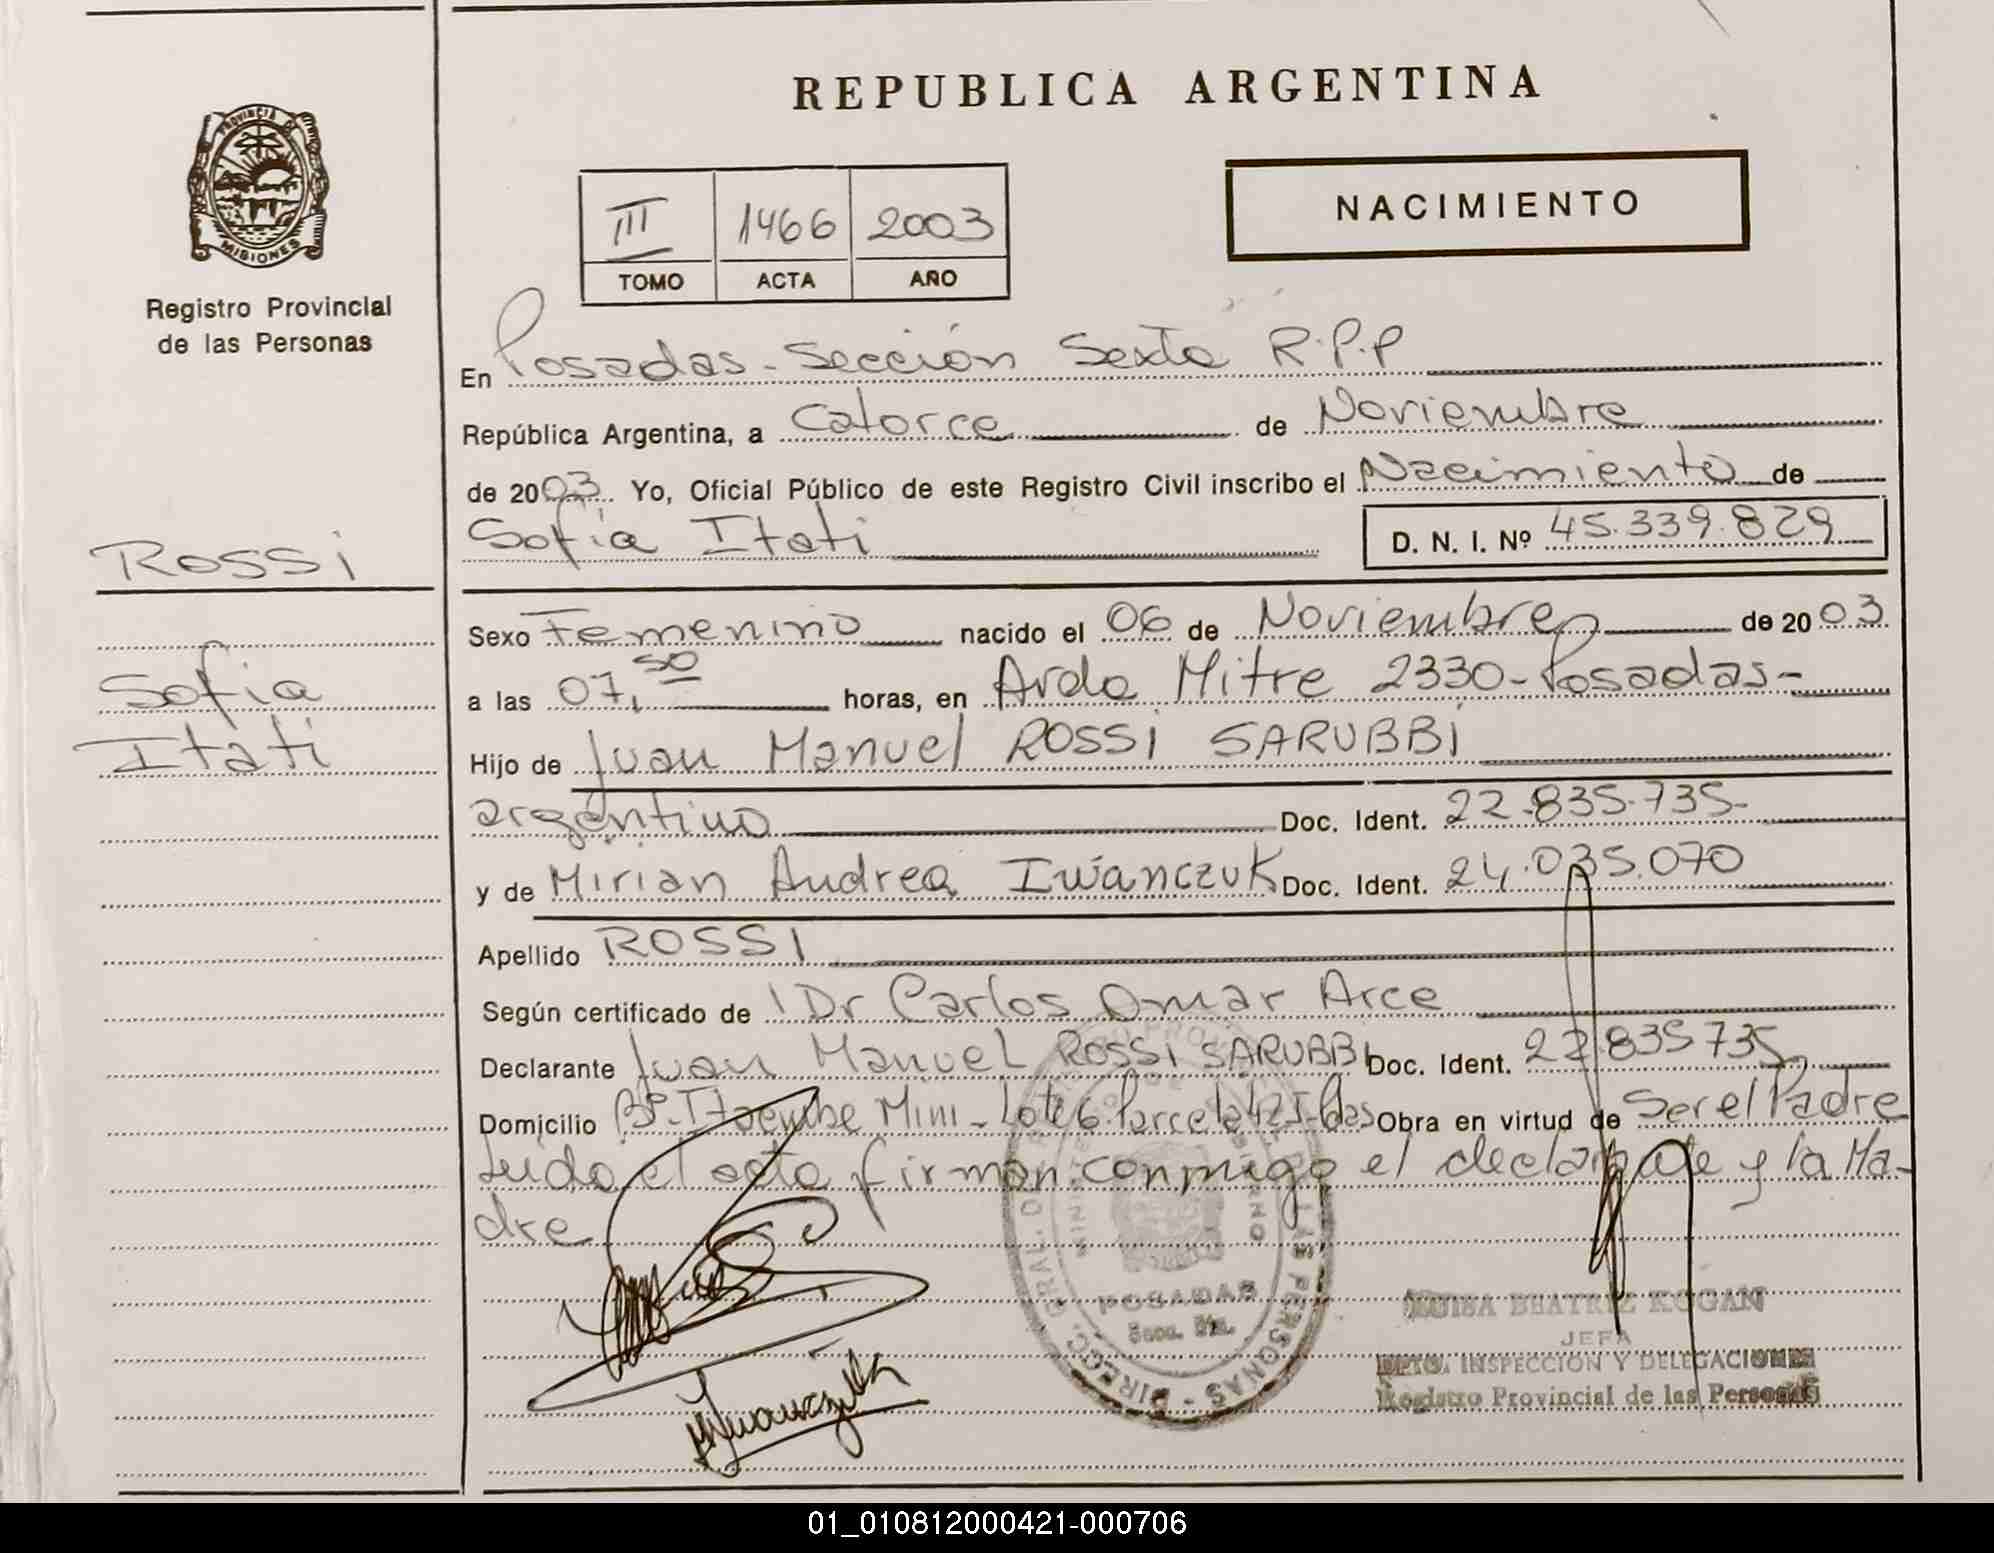 REPUBLICA ARGENTINA
PROVINCIA DE
MISIONES
Registro Provincial
de las Personas
III 1466 2003
TOMO ACTA AÑO
NACIMIENTO
En Posadas - Sección Sexta R.P.P
República Argentina, a Catorce de Noviembre
de 2003. Yo, Oficial Público de este Registro Civil inscribo el Nacimiento de
Sofía Itatí D. N. I. Nº 45.339.829
ROSSI
Sofía
Itatí
Sexo Femenino nacido el 06 de Noviembre de 2003
a las 07,50 horas, en Avda Mitre 2330 - Posadas -
Hijo de Juan Manuel ROSSI SARUBBI
argentino Doc. Ident. 22.835.735-
y de Mirian Andrea Iwanczuk Doc. Ident. 24.035.070
Apellido ROSSI
Según certificado de Dr Carlos Omar Arce
Declarante Juan Manuel ROSSI SARUBBI Doc. Ident. 22.835735
Domicilio Bº Itaembe Mini - Lote 6 Parcela Obra en virtud de Ser el Padre
Leida el acta firman conmigo el declarante y la Ma-
dre
DIRECC. GRAL. DEL REGISTRO PROVINCIAL DE LAS PERSONAS
MINISTERIO DE GOBIERNO
POSADAS
Secc. 6ta.
LUISA BEATRIZ KOGAN
JEFA
DPTO. INSPECCION Y DELEGACIONES
Registro Provincial de las Personas
01_010812000421-000706